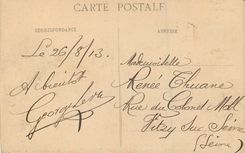 CARTE POSTALE
CORRESPONDANCE
ADRESSE
Le 26/8/13.
A bientôt
Mademoiselle
Renée Thuane
Rue du Colonel Moll
Vitry Sur Seine
(Seine)